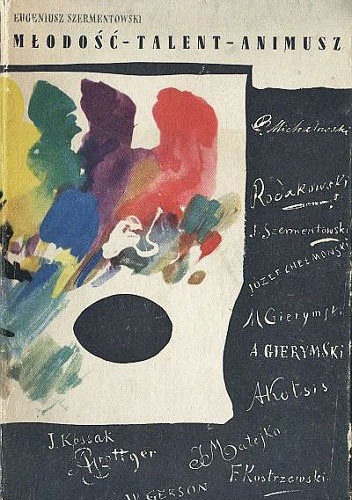 EUGENIUSZ SZERMENTOWSKI
MŁODOŚĆ-TALENT-ANIMUSZ
P. Michałowski
Rodakowski
J. Szermentowski
JÓZEF CHEŁMOŃSKI
M Gierymski
A. GIERYMSKI
A Kotsis
J. Kossak
AGrottger
J Matejko
F. Kostrzewski
W. GERSON